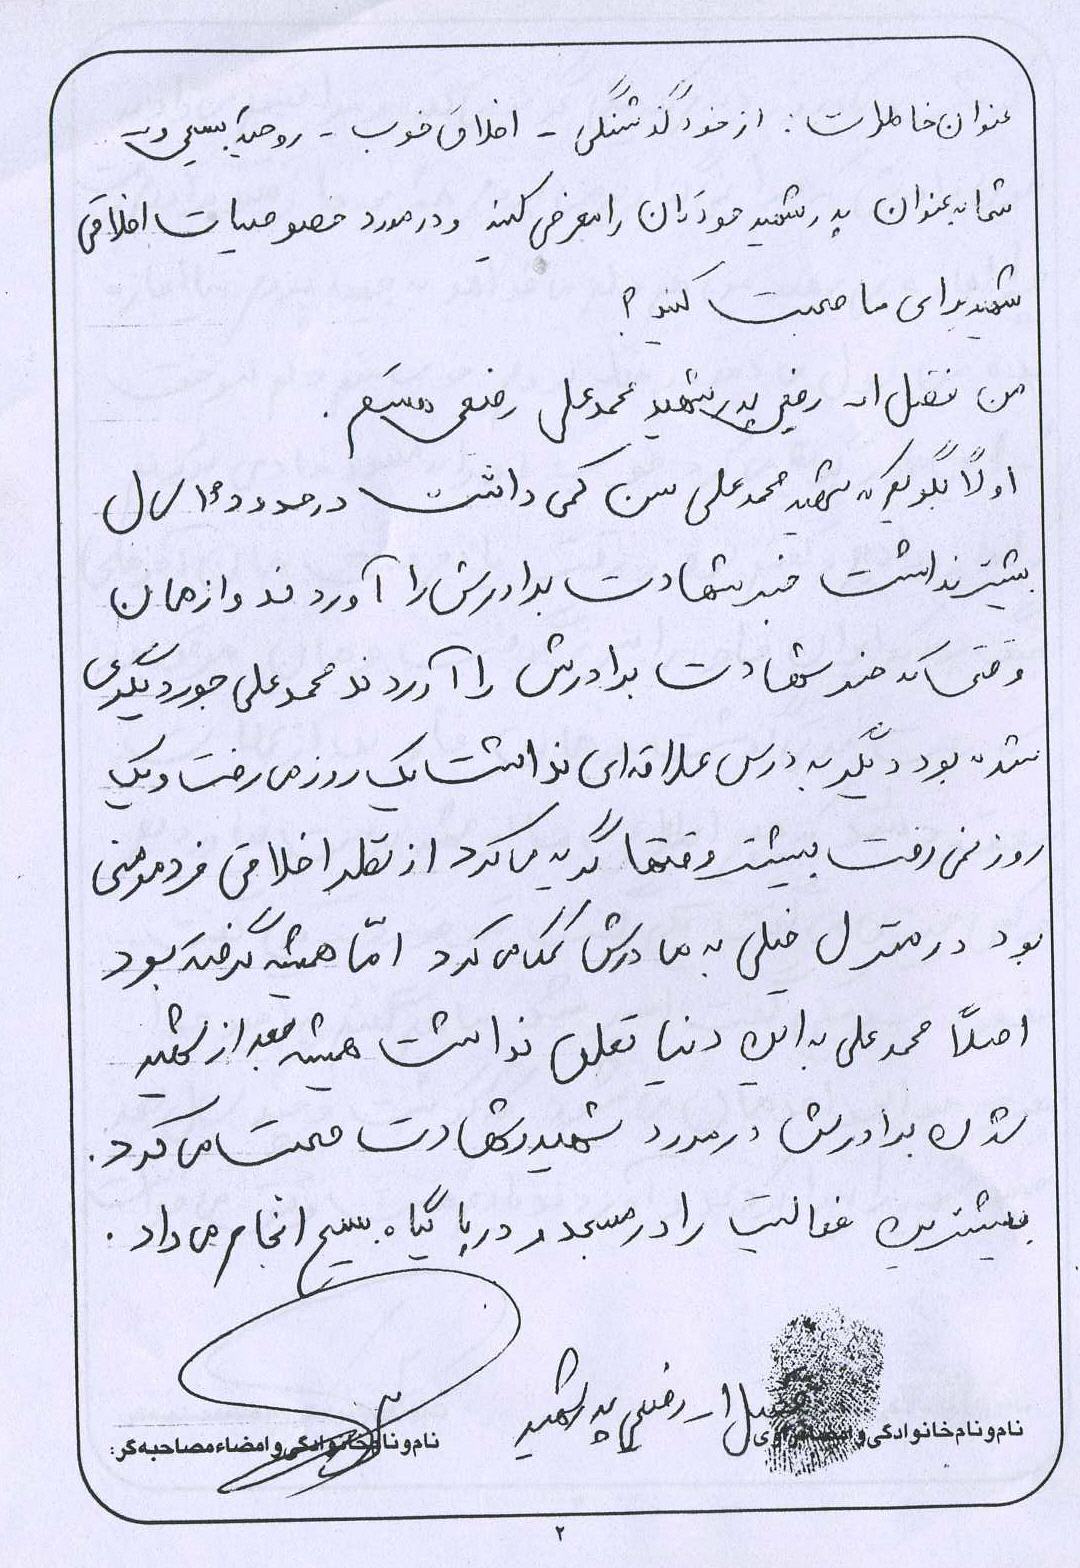 عنوان خاطرات: از خود گذشتگی - اخلاق خوب - روحیهٔ بسیجی و...
شما به عنوان پدر شهید خودتان را معرفی کنید و در مورد خصوصیات اخلاقی
شهید برای ما صحبت کنید؟
من فضل ا... رفیعی پدر شهید محمدعلی رفیعی هستم.
اولاً بگویم که شهید محمدعلی سن کمی داشت در حدود ۱۶ سال
بیشتر نداشت خبر شهادت برادرش را آوردند و از همان
وقتی که خبر شهادت برادرش را آوردند محمدعلی جور دیگری
شده بود دیگر به درس علاقه‌ای نداشت یک روز می رفت و یک
روز نمی رفت بیشتر وقتها گریه می کرد از نظر اخلاقی فرد مومنی
بود در منزل خیلی به مادرش کمک می کرد امّا همیشه گرفته بود
اصلاً محمدعلی به این دنیا تعلق نداشت همیشه بعد از شهید
شدن برادرش در مورد شهید و شهادت صحبت می کرد.
بیشترین فعالیت را در مسجد و در پایگاه بسیج انجام می داد.
فضل ا... رفیعی پدر شهید
نام و نام خانوادگی و
نام و نام خانوادگی و امضاء مصاحبه گر:
۲